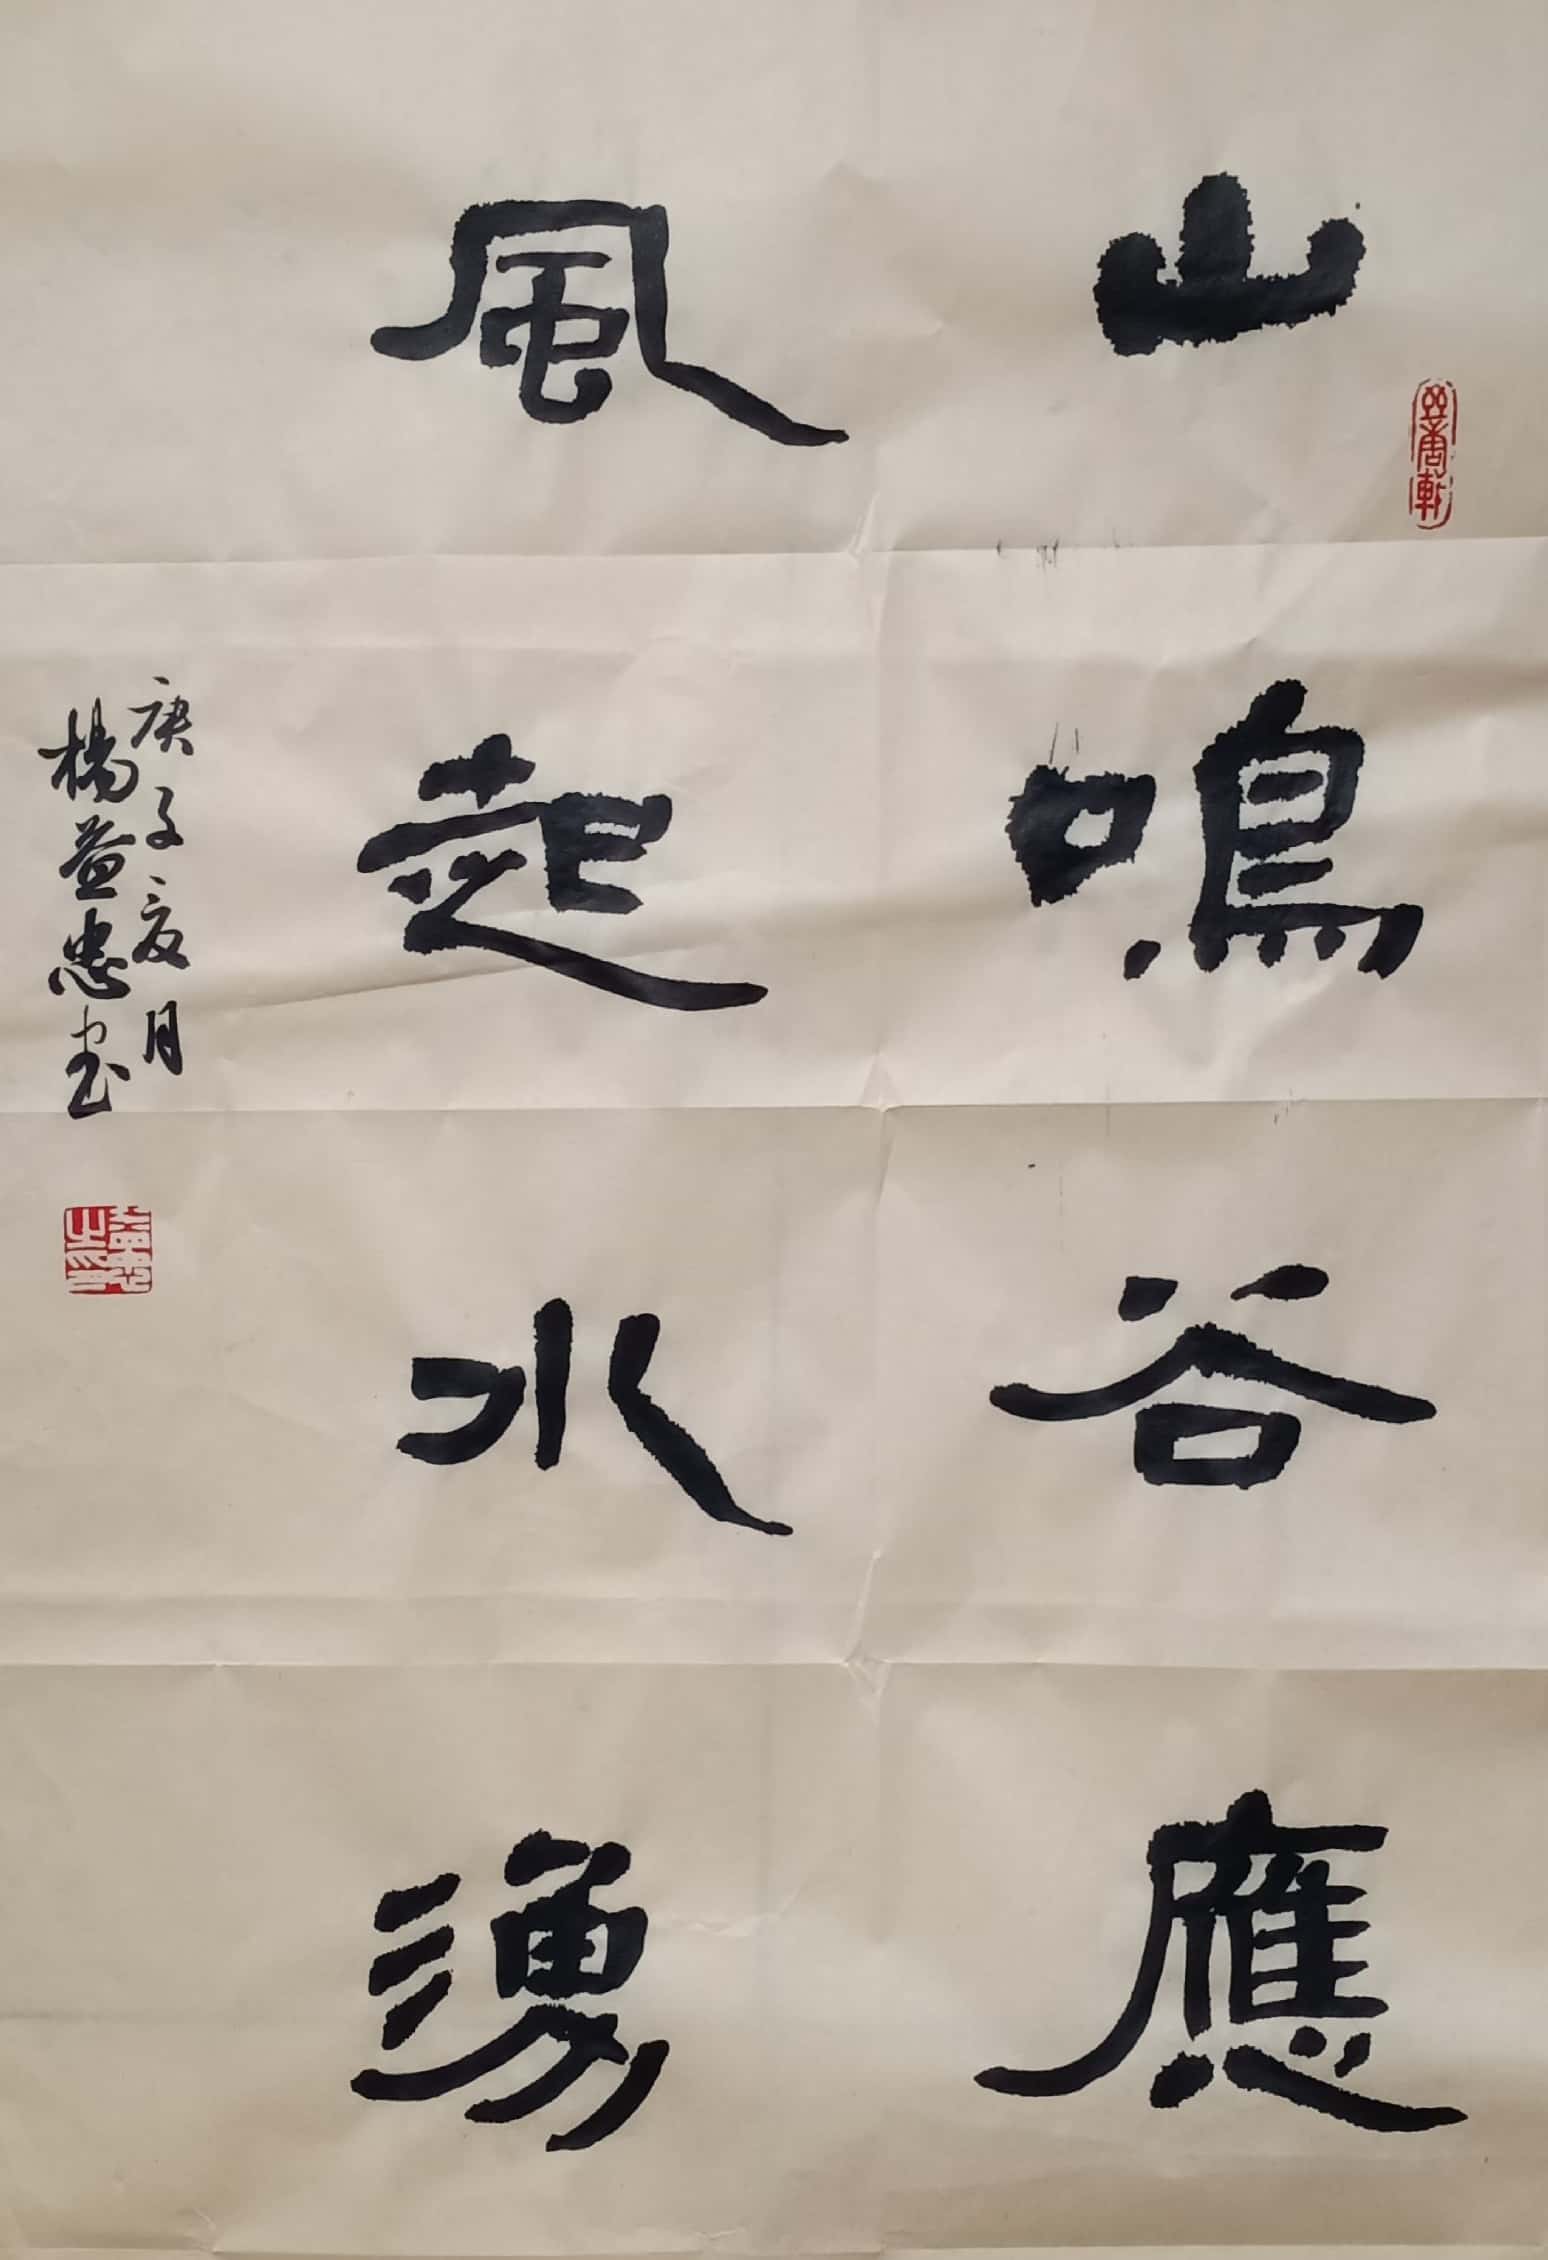 山鳴谷應
風起水湧
庚子夏月
楊益忠书